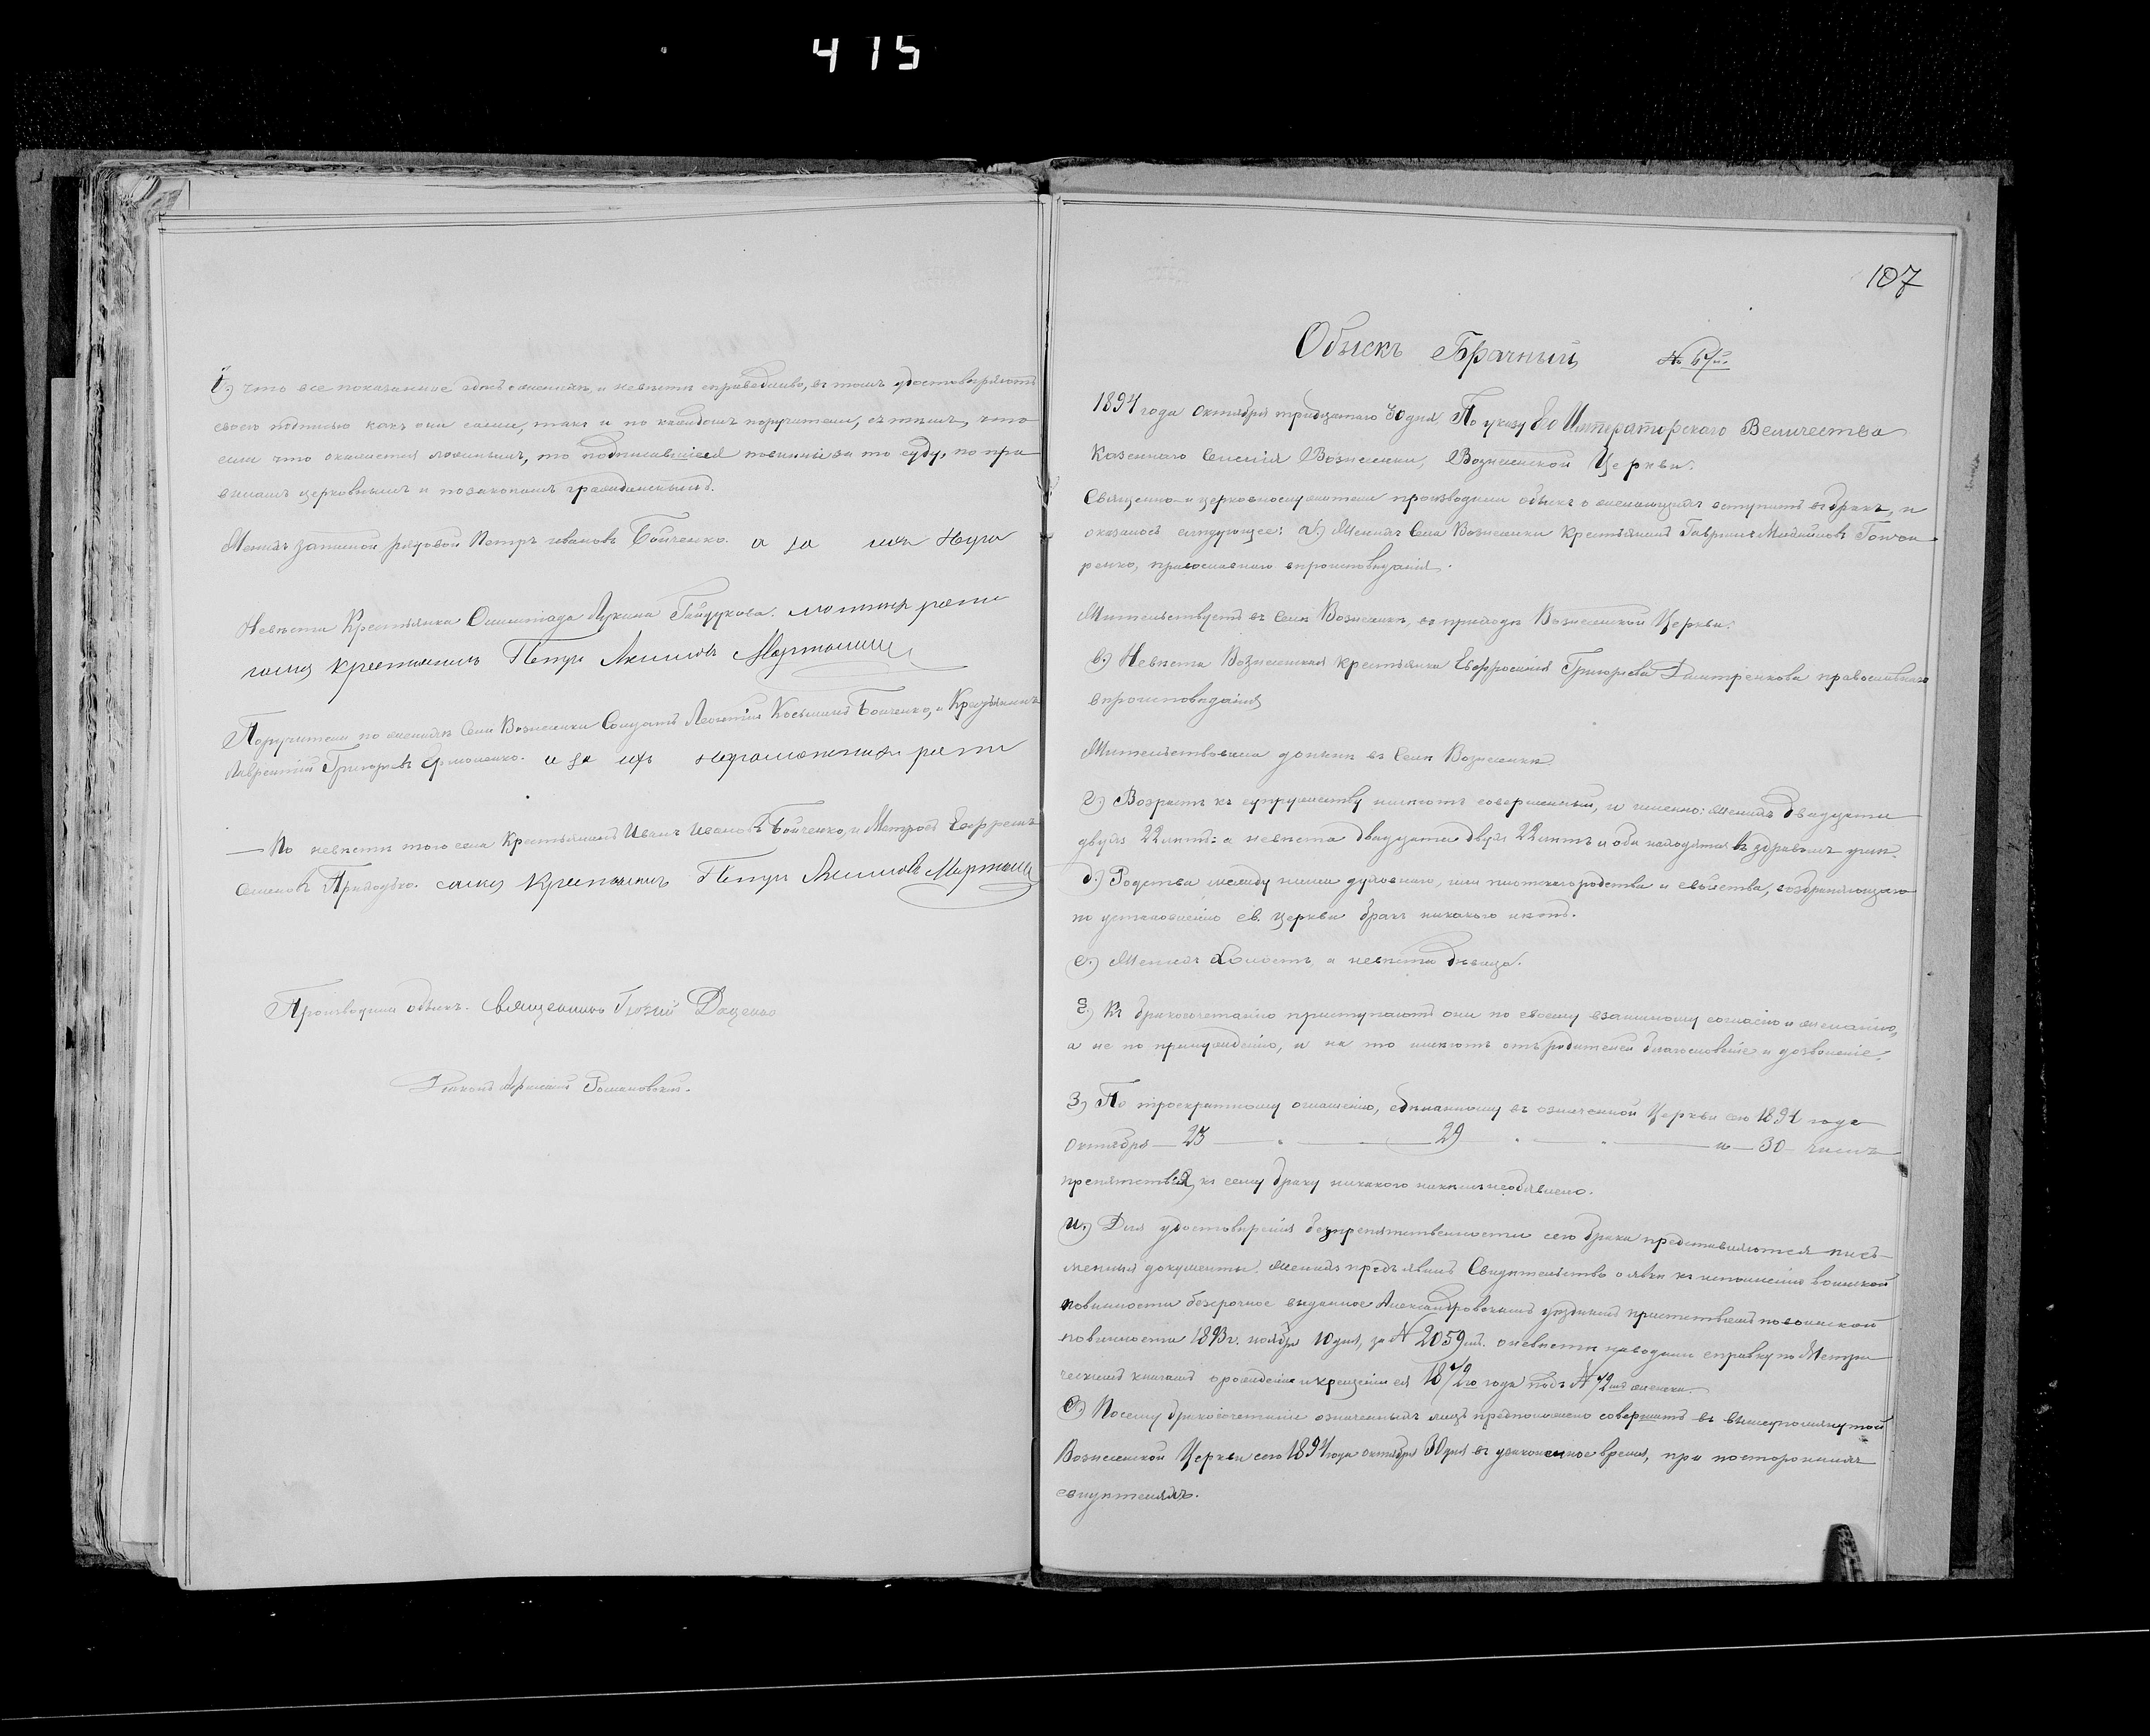 415
і.) что все показанное здѣсь о женихѣ и невѣстѣ справедливо, въ томъ удостовѣряютъ
своею подписью какъ они сами, такъ и по каждомъ поручители, съ тѣмъ, что
если что окажется ложнымъ, то подписавшіеся повинны за то суду, по пра
виламъ церковнымъ и по законамъ гражданскимъ.
Женихъ запасной рядовой Петръ Ивановъ Бойченко. а за
Невѣста Крестьянка Олимпіада Лукина Гайдукова.
крестьянинъ Петръ Акимовъ Мартынец
Поручители по женихѣ Села Вознесенки Солдатъ Леонтій Косьминъ Бойченко, и Крестьянинъ
Лаврентій Григорьевъ Ермоленко. а за ихъ
— По невѣстѣ того села Крестьянинъ Иванъ Ивановъ Бойченко, и Ефремъ
Семеновъ Приходько. крестьянинъ Петръ Акимовъ Мартынец
Производили обыскъ. Священникъ Доценко
Діаконъ Романовскій.
107
Обыскъ Брачный № 67й.
1894 года Октября тридцатаго 30 дня, По указу Его Императорскаго Величества
Казеннаго Селенія Вознесенки, Вознесенской Церкви.
Священно- и церковнослужители производили обыскъ о желающихъ вступить въ бракъ, и
оказалось слѣдующее: а.) Женихъ Села Вознесенки Крестьянинъ Гавріилъ Михайловъ Гонча
ренко, православнаго вѣроисповѣданія.
Жительствуетъ въ Селѣ Вознесенкѣ, въ приходѣ Вознесенской Церкви.
в.) Невѣста Вознесенская крестьянка Евфросинія Григорьева Дмитренкова православнаго
вѣроисповѣданія
Жительствовала донынѣ въ Селѣ Вознесенкѣ
г.) Возрастъ къ супружеству имѣютъ совершенный, и именно: женихъ двадцати
двухъ 22 лѣтъ: а невѣста двадцати двухъ 22 лѣтъ и оба находятся въ здравомъ умѣ.
д.) Родства между ними духовнаго, или плотскаго родства и свойства, возбраняющаго
по установленію св. Церкви бракъ никакого нѣтъ.
е.) Женихъ Холостъ, а невѣста дѣвица.
ѕ.) Къ бракосочетанію приступаютъ они по своему взаимному согласію и желанію,
а не по принужденію, и на то имѣютъ отъ родителей благословеніе и дозволеніе.
з) По троекратному оглашенію, сдѣланному въ означенной Церкви сего 1894 года
Октября — 23 — 29 — и — 30 числъ
препятствія къ сему браку никакого никѣмъ необъявлено.
и.) Для удостовѣренія безпрепятственности сего брака представляются пись-
менныя документы: Женихъ предъявилъ Свидѣтельство о явкѣ къ исполненію воинской
повинности безсрочное выданное Александровскимъ уѣзднымъ присутствіемъ по воинской
повинности 1893 г. ноября 10 дня, за № 2059мъ. о невѣстѣ наводили справку по Метри
ческимъ книгамъ о рожденіи и крещеніи ея 1872го года подъ № 72мъ женска.
ѳ.) Посему бракосочетаніе означенныхъ лицъ предположено совершить въ вышеупомянутой
Вознесенской Церкви сего 1894 года октября 30 дня въ узаконенное время, при постороннихъ
свидѣтеляхъ.